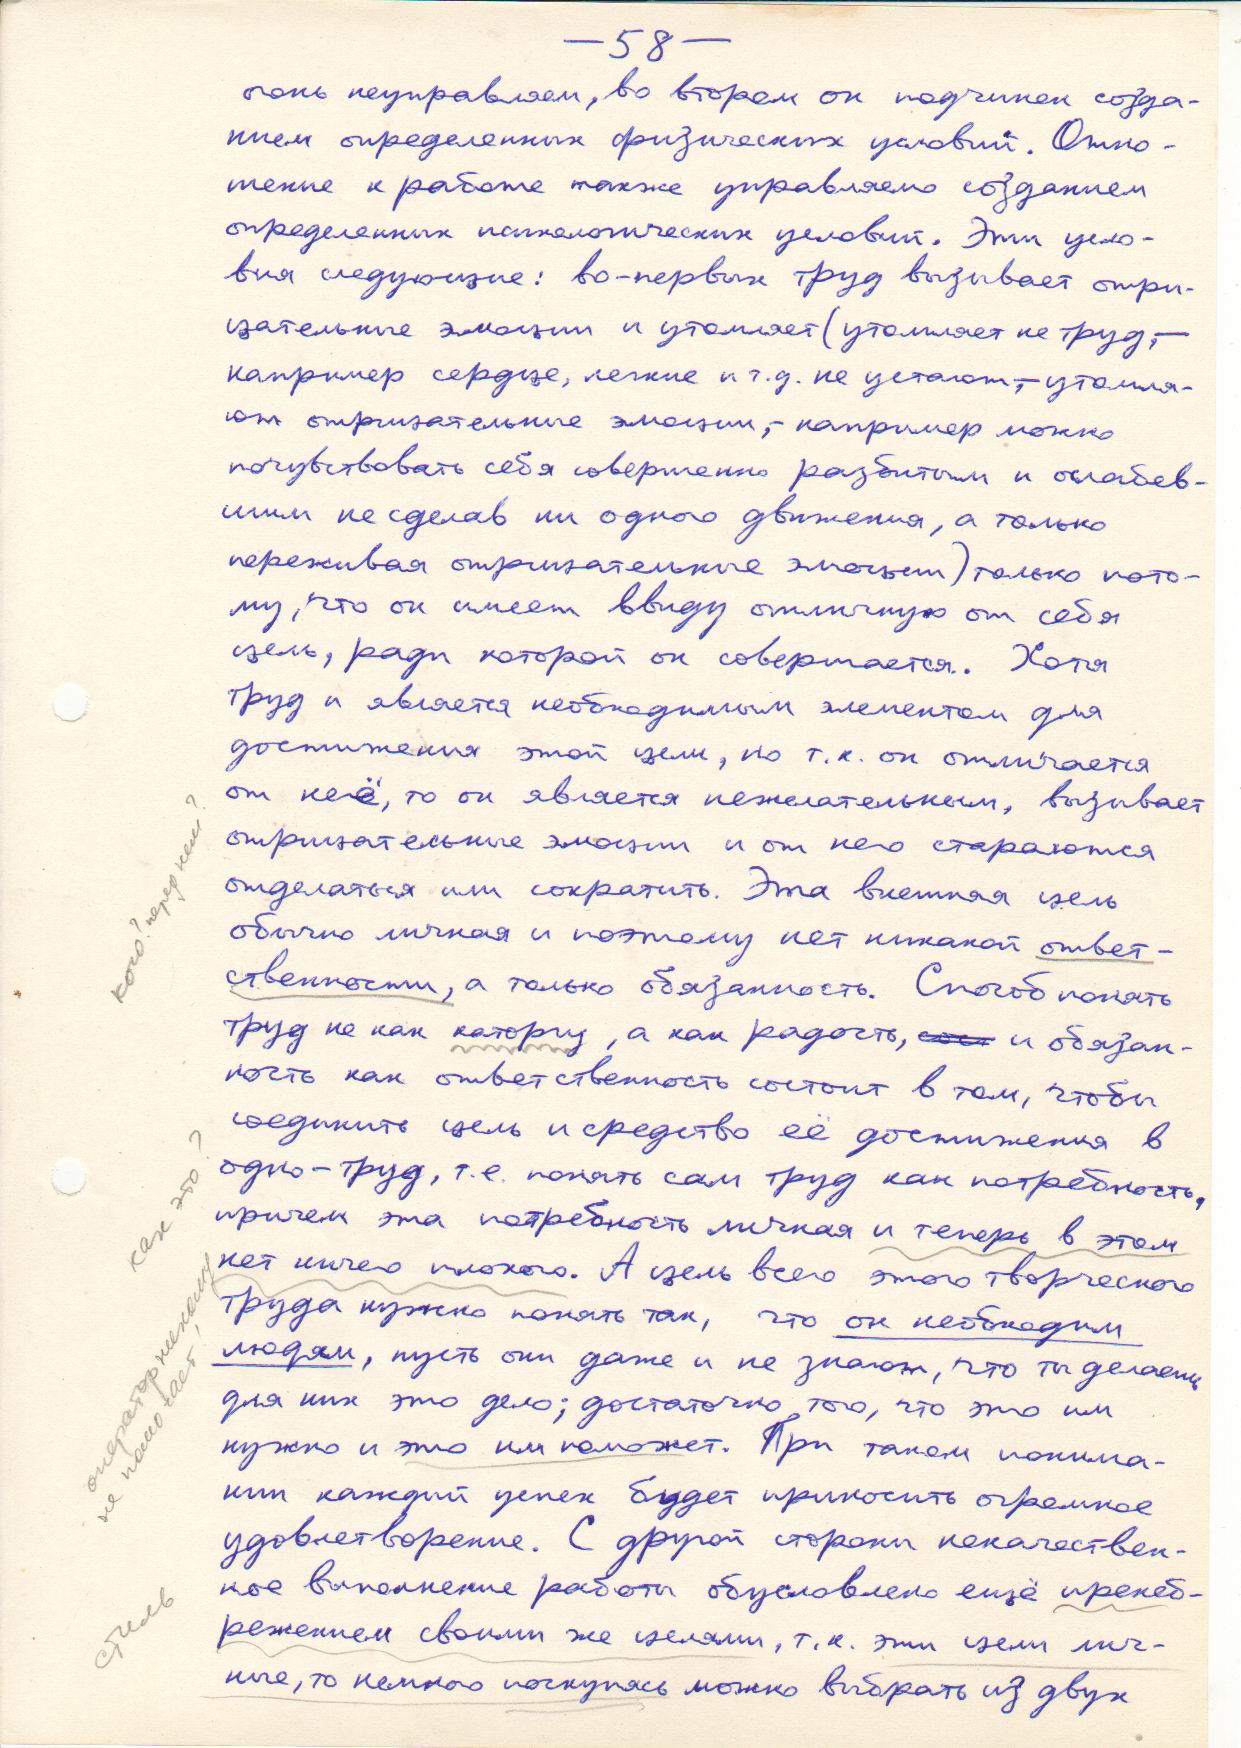 — 58 —
огонь неуправляем, во втором он подчинен созда-
нием определенных физических условий. Отно-
шение к работе также управляемо созданием
определенных психологических условий. Эти усло-
вия следующие: во-первых труд вызывает отри-
цательные эмоции и утомляет (утомляет не труд, —
например сердце, легкие и т.д. не устают, — утомля-
ют отрицательные эмоции, - например можно
почувствовать себя совершенно разбитым и ослабев-
шим не сделав ни одного движения, а только
переживая отрицательные эмоции) только пото-
му, что он имеет ввиду отличную от себя
цель, ради которой он совершается. Хотя
труд и является необходимым элементом для
достижения этой цели, но т.к. он отличается
от неё, то он является нежелательным, вызывает
отрицательные эмоции и от него стараются
отделаться или сократить. Эта внешняя цель
обычно личная и поэтому нет никакой ответ-
ственности, а только обязанность. Способ понять
труд не как каторгу, а как радость, и обязан-
ность как ответственность состоит в том, чтобы
соединить цель и средство её достижения в
одно - труд, т.е. понять сам труд как потребность,
причем эта потребность личная и теперь в этом
нет ничего плохого. А цель всего этого творческого
труда нужно понять так, что он необходим
людям, пусть они даже и не знают, что ты делаешь
для них это дело; достаточно того, что это им
нужно и это им поможет. При таком понима-
нии каждый успех будет приносить огромное
удовлетворение. С другой стороны некачествен-
ное выполнение работы обусловлено ещё пренеб-
режением своими же целями, т.к. эти цели лич-
ные, то немного поскупясь можно выбрать из двух
кого? перед кем?
как это?
оператор никому
не помогает!
стиль